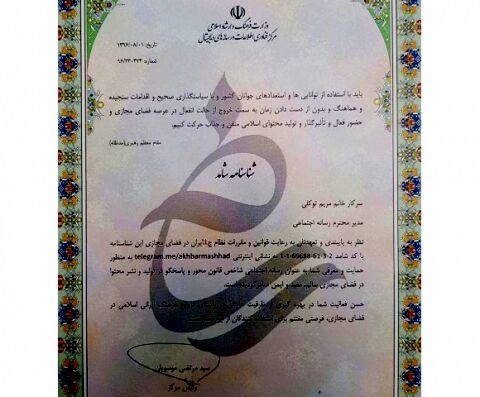 وزارت فرهنگ و ارشاد اسلامی
مرکز فناوری اطلاعات و رسانه‌های دیجیتال
تاریخ: ۱۳۹۶/۰۸/۰۱
شماره: ۹۶/۲۳-۴۲۴
باید با استفاده از توانایی ها و استعدادهای جوانان کشور و با سیاستگذاری صحیح و اقدامات سنجیده
و هماهنگ و بدون از دست دادن زمان به سمت خروج از حالت انفعال در عرصه فضای مجازی و
حضور فعال و تأثیرگذار و تولید محتوای اسلامی متقن و جذاب حرکت کنیم.
مقام معظم رهبری(مدظله)
شناسنامه شامد
سرکار خانم مریم توکلی
مدیر محترم رسانه اجتماعی
نظر به پایبندی و تعهدتان به رعایت قوانین و مقررات نظام ج.ا.ایران در فضای مجازی این شناسنامه
با کد شامد 1-1-69688-61-3-2 به نشانی اینترنتی telegram.me/akhbarmashhad به منظور
حمایت و معرفی شما به عنوان رسانه اجتماعی شاخص قانون محور و پاسخگو در تولید و نشر محتوا
در فضای مجازی سالم، مفید و ایمن صادر گردیده است.
حسن فعالیت شما در بهره گیری از ظرفیت فرهنگ ایرانی اسلامی در
فضای مجازی، فرصتی مغتنم برای استفاده کنندگان از این است.
سید مرتضی موسویان
رئیس مرکز